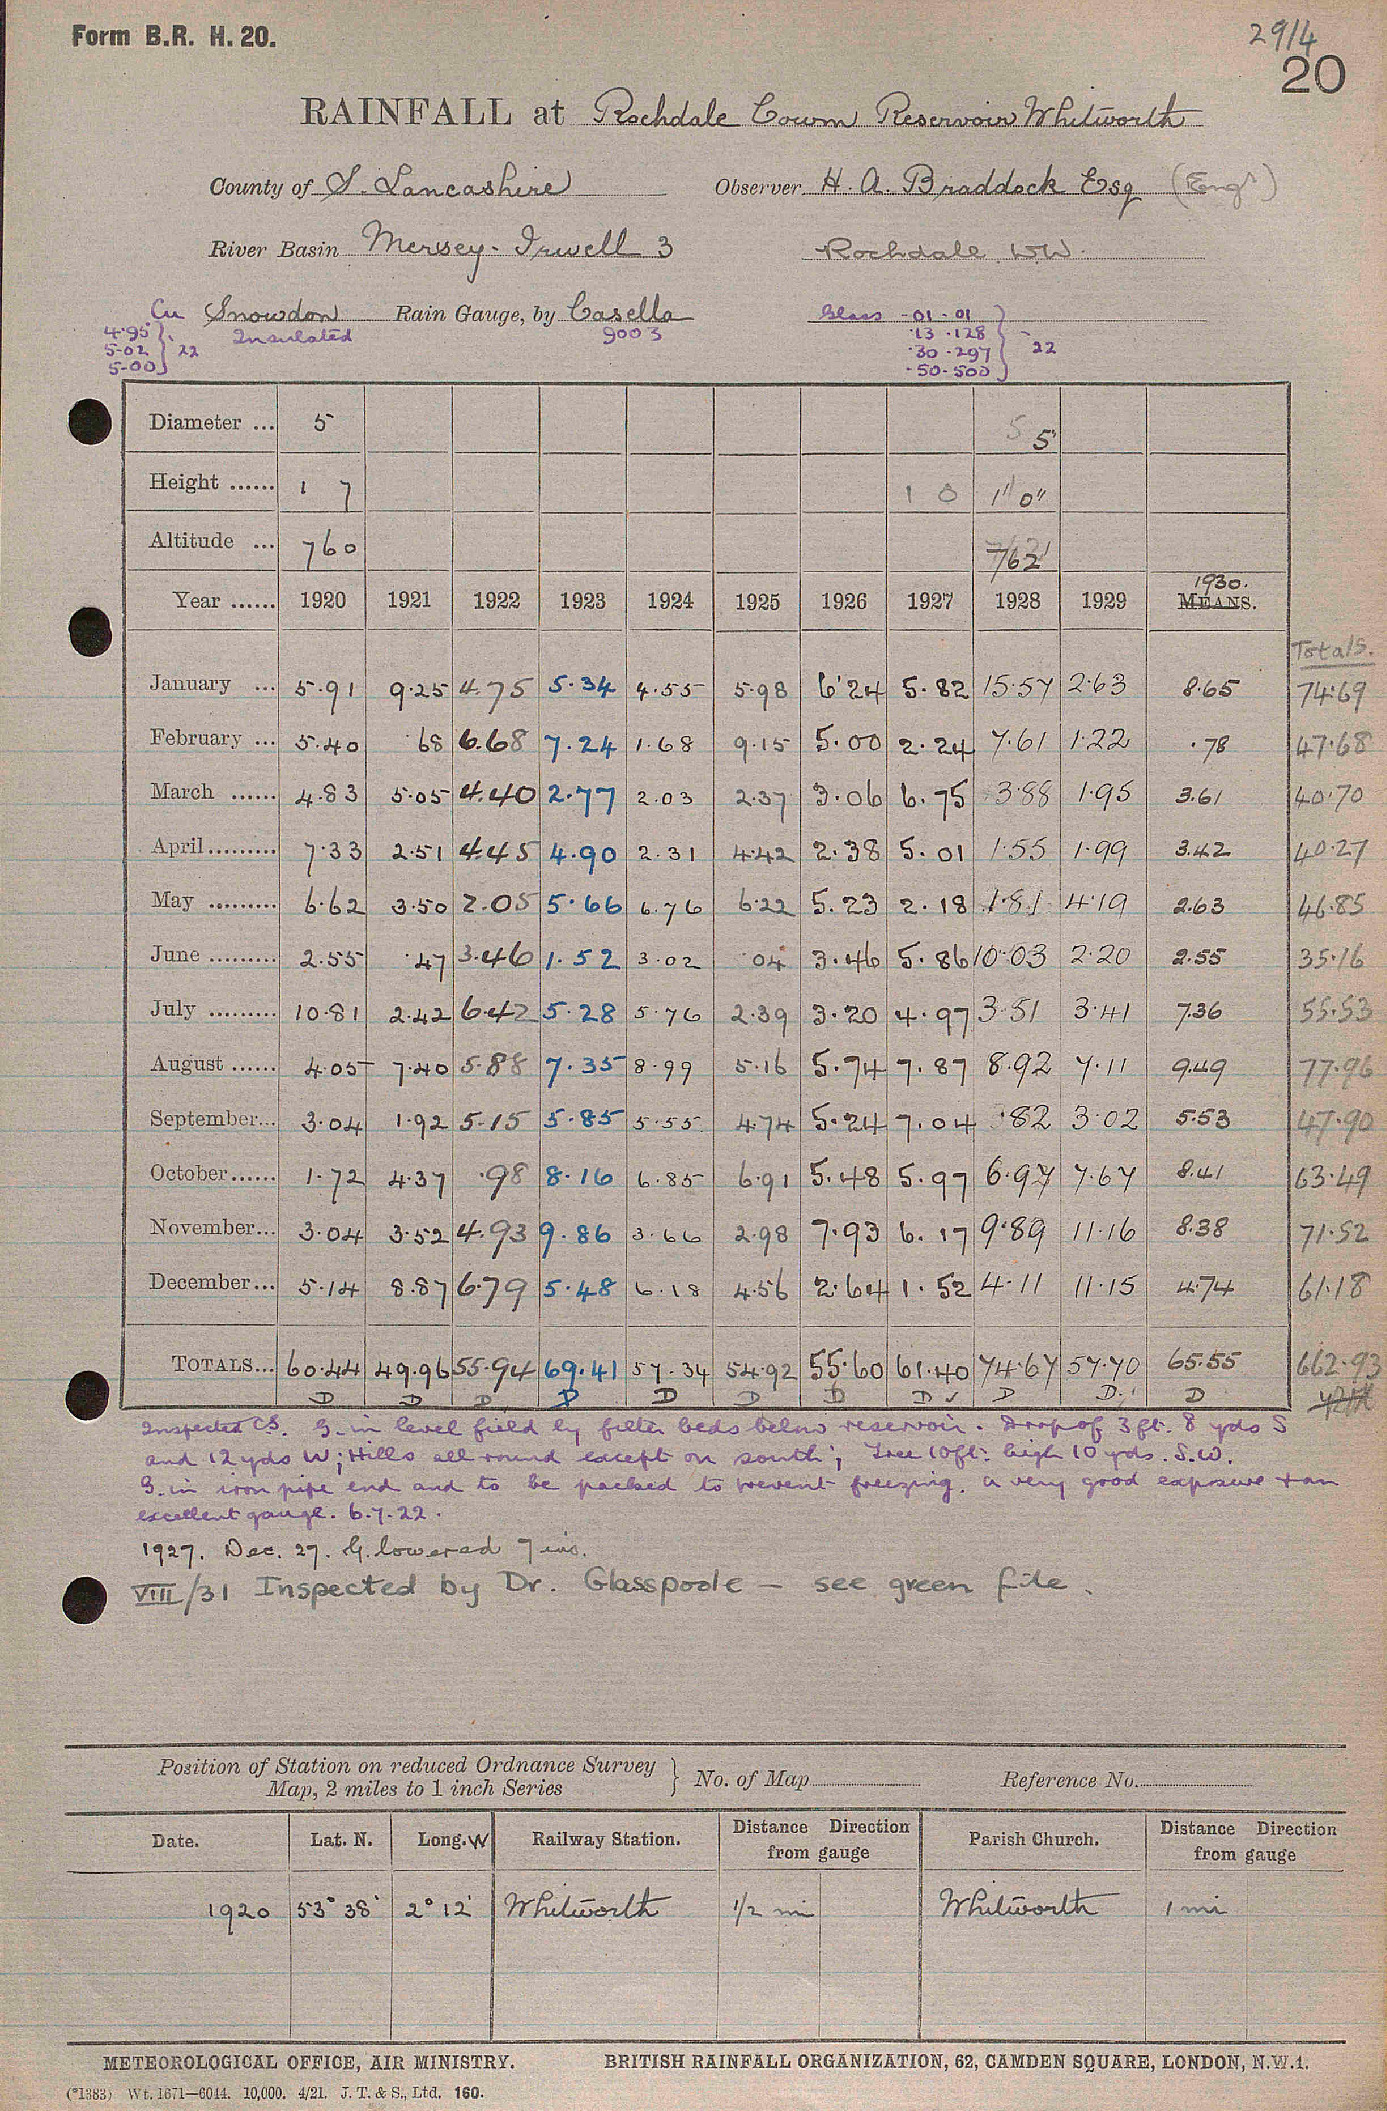 Form B.R. H. 20.
29/4
20
RAINFALL at Rochdale Cowm Reservoir Whitworth
County of S. Lancashire Observer H. A. Braddock Esq (Engr)
River Basin Mersey - Irwell 3 Rochdale W.W.
Cu Snowdon Rain Gauge, by Casella Glass .01 .01
4.95 Insulated 9003 .13 .128
5.02 } 22 .30 .297 } 22
5.00 .50 .500
Diameter ... 5 5 5
Height ...... 1 7 1 0 1' 0"
Altitude ... 760 762'
Year ...... 1920 1921 1922 1923 1924 1925 1926 1927 1928 1929 1930. MEANS.
Totals.
January ... 5.91 9.25 4.75 5.34 4.55 5.98 6.24 5.82 15.57 2.63 8.65 74.69
February ... 5.40 .68 6.68 7.24 1.68 9.15 5.00 2.24 7.61 1.22 .78 47.68
March ...... 4.83 5.05 4.40 2.77 2.03 2.37 3.06 6.75 3.88 1.95 3.61 40.70
April ......... 7.33 2.51 4.45 4.90 2.31 4.42 2.38 5.01 1.55 1.99 3.42 40.27
May ......... 6.62 3.50 2.05 5.66 6.76 6.22 5.23 2.18 1.81 4.19 2.63 46.85
June ......... 2.55 .47 3.46 1.52 3.02 .04 3.46 5.86 10.03 2.20 2.55 35.16
July ......... 10.81 2.42 6.42 5.28 5.76 2.39 3.20 4.97 3.51 3.41 7.36 55.53
August ...... 4.05 7.40 5.88 7.35 8.99 5.16 5.74 7.87 8.92 7.11 9.49 77.96
September... 3.04 1.92 5.15 5.85 5.55 4.74 5.24 7.04 .82 3.02 5.53 47.90
October ...... 1.72 4.37 .98 8.16 6.85 6.91 5.48 5.97 6.97 7.67 8.41 63.49
November... 3.04 3.52 4.93 9.86 3.66 2.98 7.93 6.17 9.89 11.16 8.38 71.52
December... 5.14 8.87 6.79 5.48 6.18 4.56 2.64 1.52 4.11 11.15 4.74 61.18
TOTALS... 60.44 49.96 55.94 69.41 57.34 54.92 55.60 61.40 74.67 57.70 65.55 662.93
D D D D D D D D ✓ D D D
Inspected CS. G. in level field by filter beds below reservoir. Drop of 3 ft. 8 yds S
and 12 yds W; Hills all round except on south; Tree 10 ft. high 10 yds. S.W.
G. in iron pipe end and to be packed to prevent freezing. A very good exposure & an
excellent gauge. 6.7.22.
1927. Dec. 27. G. lowered 7 ins.
VIII/31 Inspected by Dr. Glasspoole - see green file.
Position of Station on reduced Ordnance Survey
Map, 2 miles to 1 inch Series } No. of Map Reference No.
Date. Lat. N. Long. W Railway Station. Distance Direction from gauge Parish Church. Distance Direction from gauge
1920 53° 38' 2° 12' Whitworth 1/2 mi Whitworth 1 mi
METEOROLOGICAL OFFICE, AIR MINISTRY. BRITISH RAINFALL ORGANIZATION, 62, CAMDEN SQUARE, LONDON, N.W.1.
(*1383) Wt. 1671—6044. 10,000. 4/21. J. T. & S., Ltd. 160.